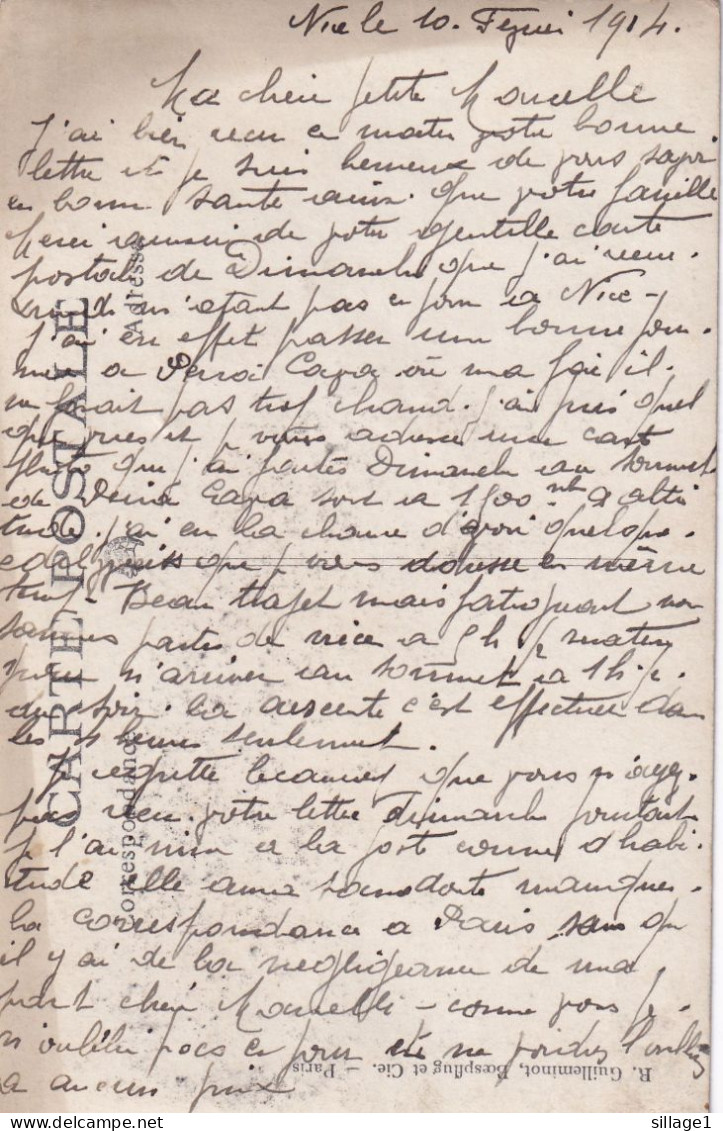 Nice le 10. Fevrier 1914.
Ma chère petite Marcelle
J'ai bien recu ce matin votre bonne
lettre et je suis heureux de vous savoir
en bonne santé ainsi que votre famille
Merci aussi de votre gentille carte
postale de Dimanche que j'ai recu.
n'etant pas ce jour a Nice -
J'ai en effet passer une bonne jour
née a Peira Cava où ma foi il.
ne fesait pas trop chaud. j'ai pris quel
que vues et je vous adresse une carte
photo que j'ai faites Dimanche au sommet
de Peira Cava soit a 1500 mt d'alti
tude. j'ai eu la chance d'avoir quelque.
edelweiss que je vous adresse en même
temps - Beau trajet mais fatiguant nous
sommes partis de nice a 5h 1/2 matin
pour n'arriver au sommet a 1h 1/2.
du soir. la descente c'est effectuer dans
les heures seulement.
Je regrette beaucoup que vous n'ayez.
pas recu votre lettre Dimanche pourtant
je l'ai mise a la poste comme d'habi
tude elle aura sans doute manquer.
la correspondance a Paris sans qu
il y ai de la négligeance de ma
part chère Marcelle - comme vous je.
n'oublie pas ce jour et ne voudrez l'oublier
a aucun prix
CARTE POSTALE
Correspondance
Adresse
R. Guilleminot, Bœspflug et Cie. - Paris
sillage1